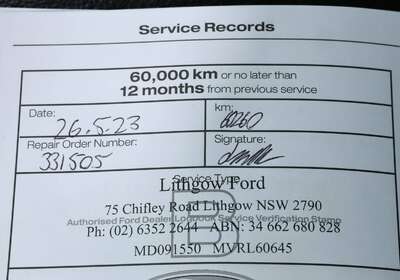 Service Records
60,000 km or no later than
12 months from previous service
Date: 26.5.23
km: 60260
Repair Order Number: 331505
Signature:
Service Type
Lithgow Ford
75 Chifley Road Lithgow NSW 2790
Authorised Ford Dealer Logbook Service Verification Stamp
Ph: (02) 6352 2644 ABN: 34 662 680 828
MD091550 MVRL60645